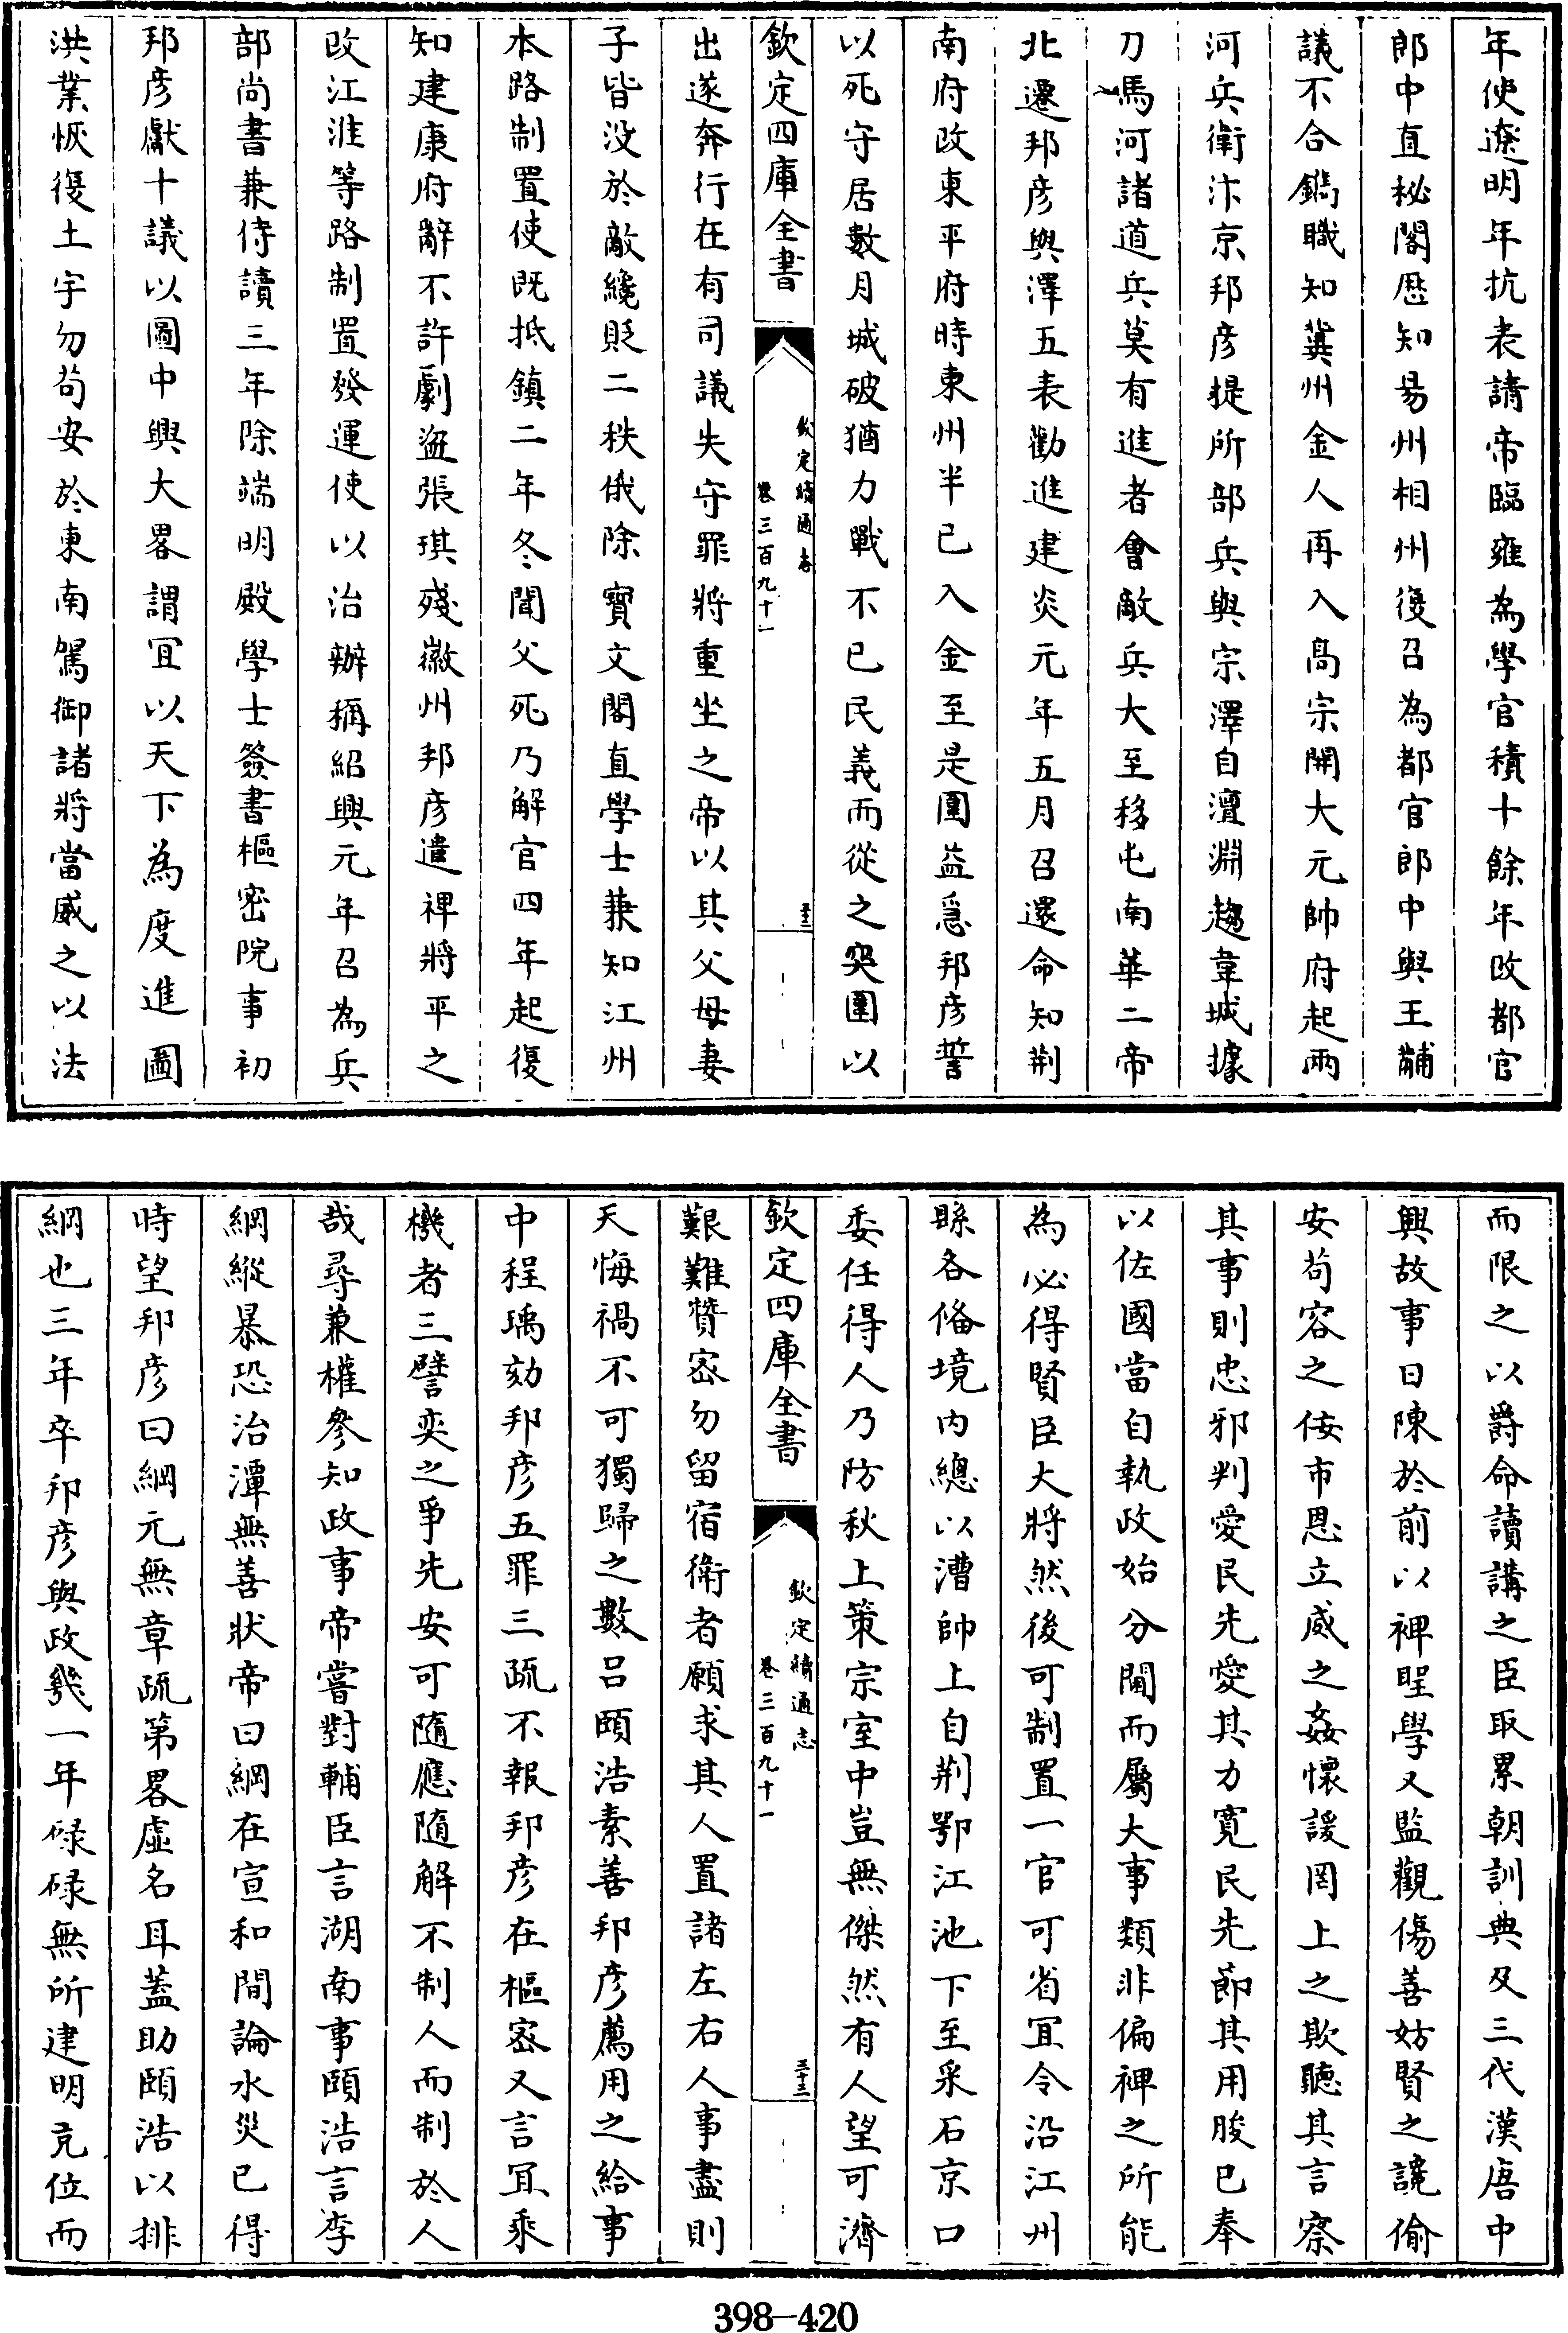 年使遼明年抗表請帝臨雍為學官積十餘年改都官
郎中直秘閣歴知易州相州復召為都官郎中與王黼
議不合鐫職知冀州金人再入高宗開大元帥府起兩
河兵衛汴京邦彦提所部兵與宗澤自澶淵趨韋城據
刀馬河諸道兵莫有進者會敵兵大至移屯南華二帝
北遷邦彦與澤五表勸進建炎元年五月召還命知荆
南府改東平府時東州半已入金至是圍益急邦彦誓
以死守居數月城破猶力戰不已民義而從之突圍以
欽定四庫全書
欽定續通志
卷三百九十一
出遂奔行在有司議失守罪將重坐之帝以其父母妻
子皆没於敵纔貶二秩俄除寳文閣直學士兼知江州
本路制置使既抵鎮二年冬聞父死乃解官四年起復
知建康府辭不許劇盜張琪殘徽州邦彦遣裨將平之
改江淮等路制置發運使以治辦稱紹興元年召為兵
部尚書兼侍讀三年除端明殿學士簽書樞密院事初
邦彦獻十議以圖中興大畧謂冝以天下為度進圖
洪業恢復土宇勿苟安於東南駕御諸將當威之以法
而限之以爵命讀講之臣取累朝訓典及三代漢唐中
興故事日陳於前以裨聖學又監觀傷善妨賢之讒偷
安苟容之佞市恩立威之姦懷諼罔上之欺聽其言察
其事則忠邪判愛民先愛其力寛民先節其用朘已奉
以佐國當自執政始分閫而屬大事類非偏裨之所能
為必得賢臣大將然後可制置一官可省冝令沿江州
縣各偹境内總以漕帥上自荆鄂江池下至采石京口
委任得人乃防秋上策宗室中豈無傑然有人望可濟
欽定四庫全書
欽定續通志
卷三百九十一
五十三
艱難贊宻勿留宿衛者願求其人置諸左右人事盡則
天悔禍不可獨歸之數吕頤浩素善邦彦薦用之給事
中程瑀劾邦彦五罪三疏不報邦彦在樞宻又言冝乘
機者三譬奕之爭先安可隨應隨解不制人而制於人
哉尋兼權參知政事帝嘗對輔臣言湖南事頤浩言李
綱縱暴恐治潭無善狀帝曰綱在宣和間論水災已得
時望邦彦曰綱元無章疏第畧虛名耳蓋助頤浩以排
綱也三年卒邦彦與政幾一年碌碌無所建明充位而
398-420